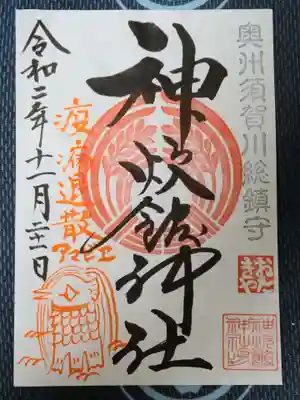 奥州須賀川総鎮守
神炊館神社
疫病退散
アマビエ
令和二年十一月二十一日